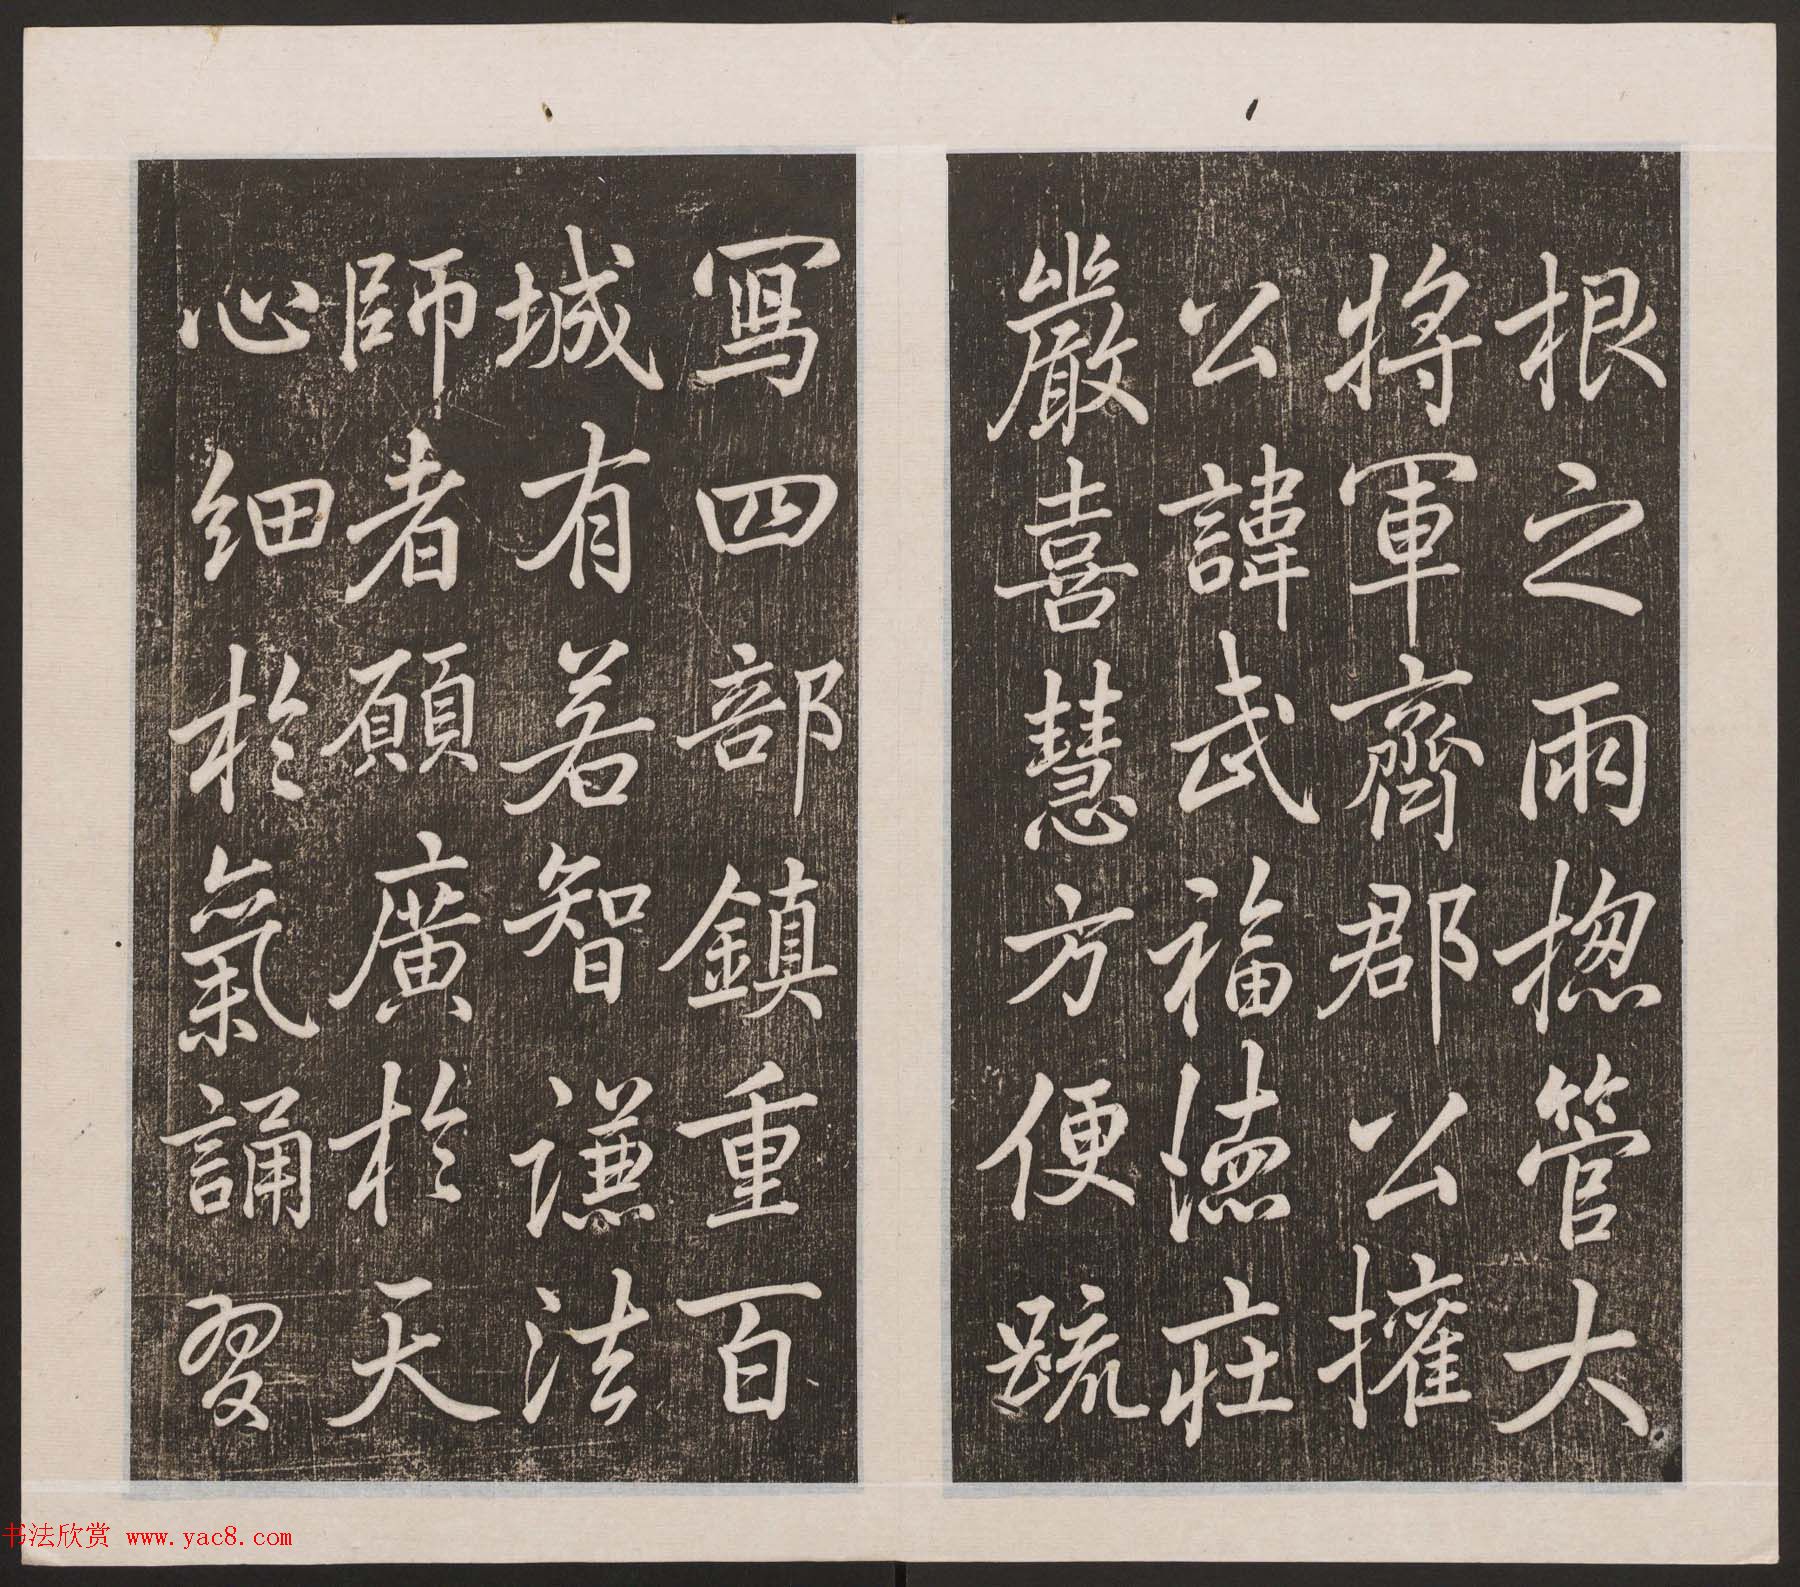 根之雨揔管大
將軍齊郡公擁
公諱武福德莊
嚴喜慧方便疏
寫四部鎮重百
城有若智謙法
師者願廣於天
心細於氣誦習
书法欣赏 www.yac8.com